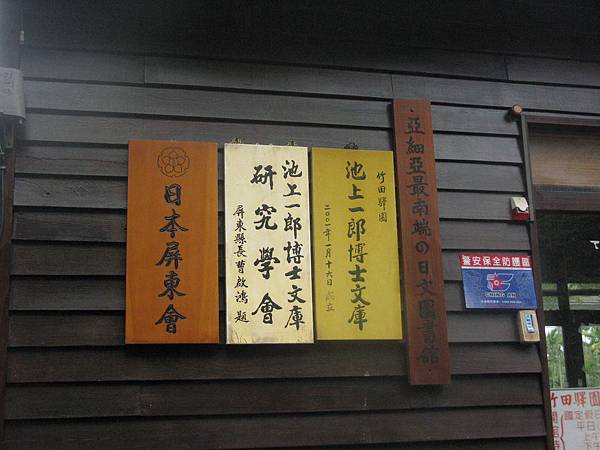 亞細亞最南端の日文圖書館
竹田驛園
池上一郎博士文庫
二〇〇一年一月十六日 成立
池上一郎博士文庫
研究學會
屏東縣長曹啟鴻 題
日本屏東會
警安保全防護區
CHUNG AN
竹田驛園
開館時
國定假日
平日
上午
下午